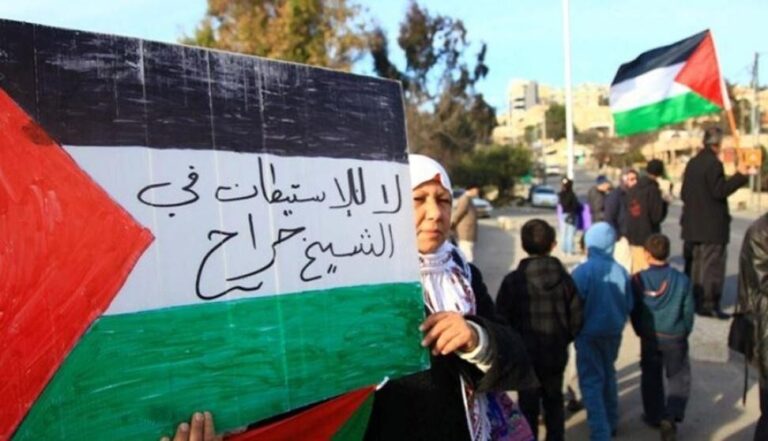 لا للإستيطان في
الشيخ جراح